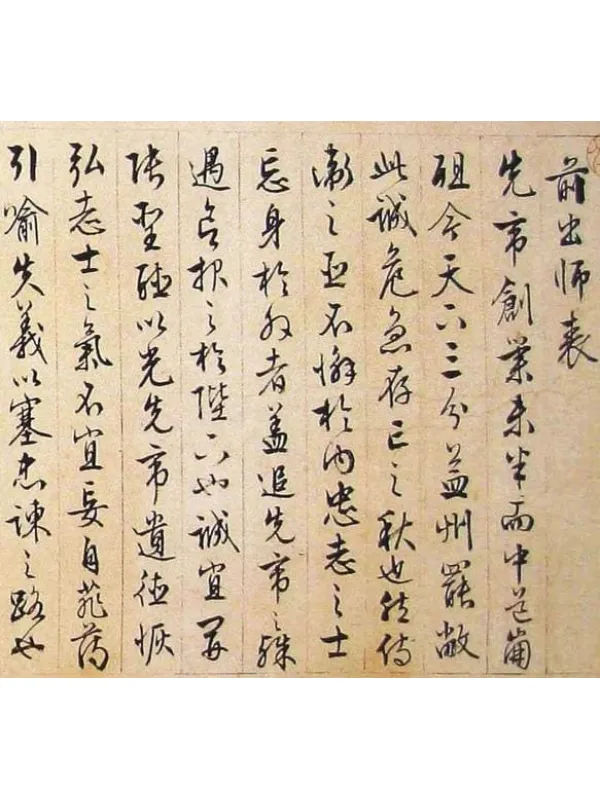 前出師表
先帝創業未半而中道崩
殂今天下三分益州罷敝
此誠危急存亡之秋也然侍
衛之臣不懈於內忠志之士
忘身於外者蓋追先帝之殊
遇欲報之於陛下也誠宜開
張聖聽以光先帝遺德恢
弘志士之氣不宜妄自菲薄
引喻失義以塞忠諫之路也